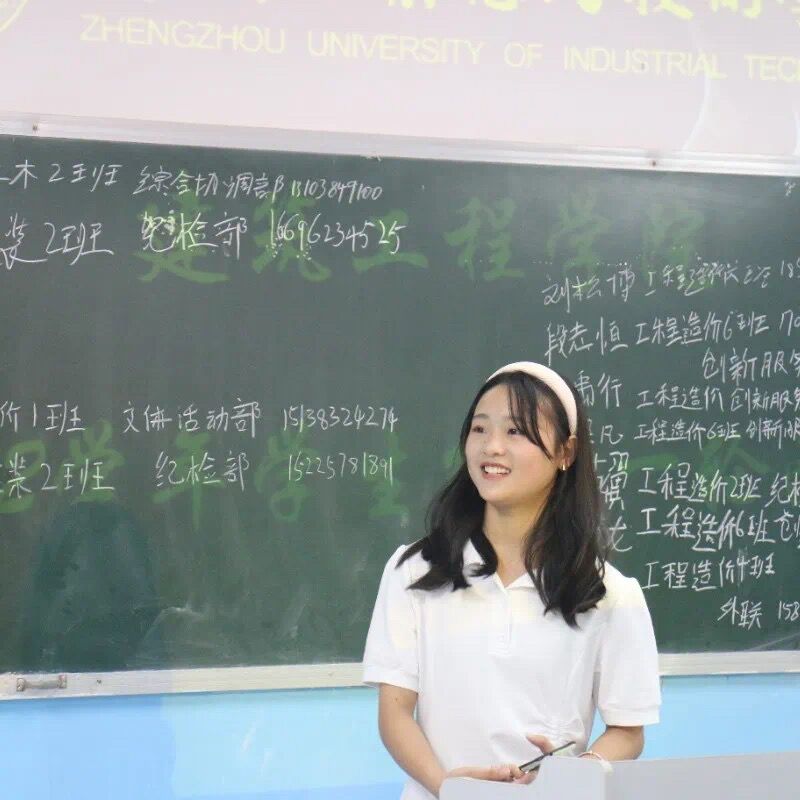 ZHENGZHOU UNIVERSITY OF INDUSTRIAL TEC
木2班 综合协调部 13103849100
装2班 纪检部 16696234525
建筑工程学院
刘松博 工程造价 185
段志恒 工程造价6班 170
创新服务
价1班 文体活动部 15138324274
行 工程造价 创新服务
凡 工程造价6班 创新服
装2班 纪检部 15225781891
学年学生
翼 工程造价2班 纪检
龙 工程造价6班 创
工程造价4班
外联 158